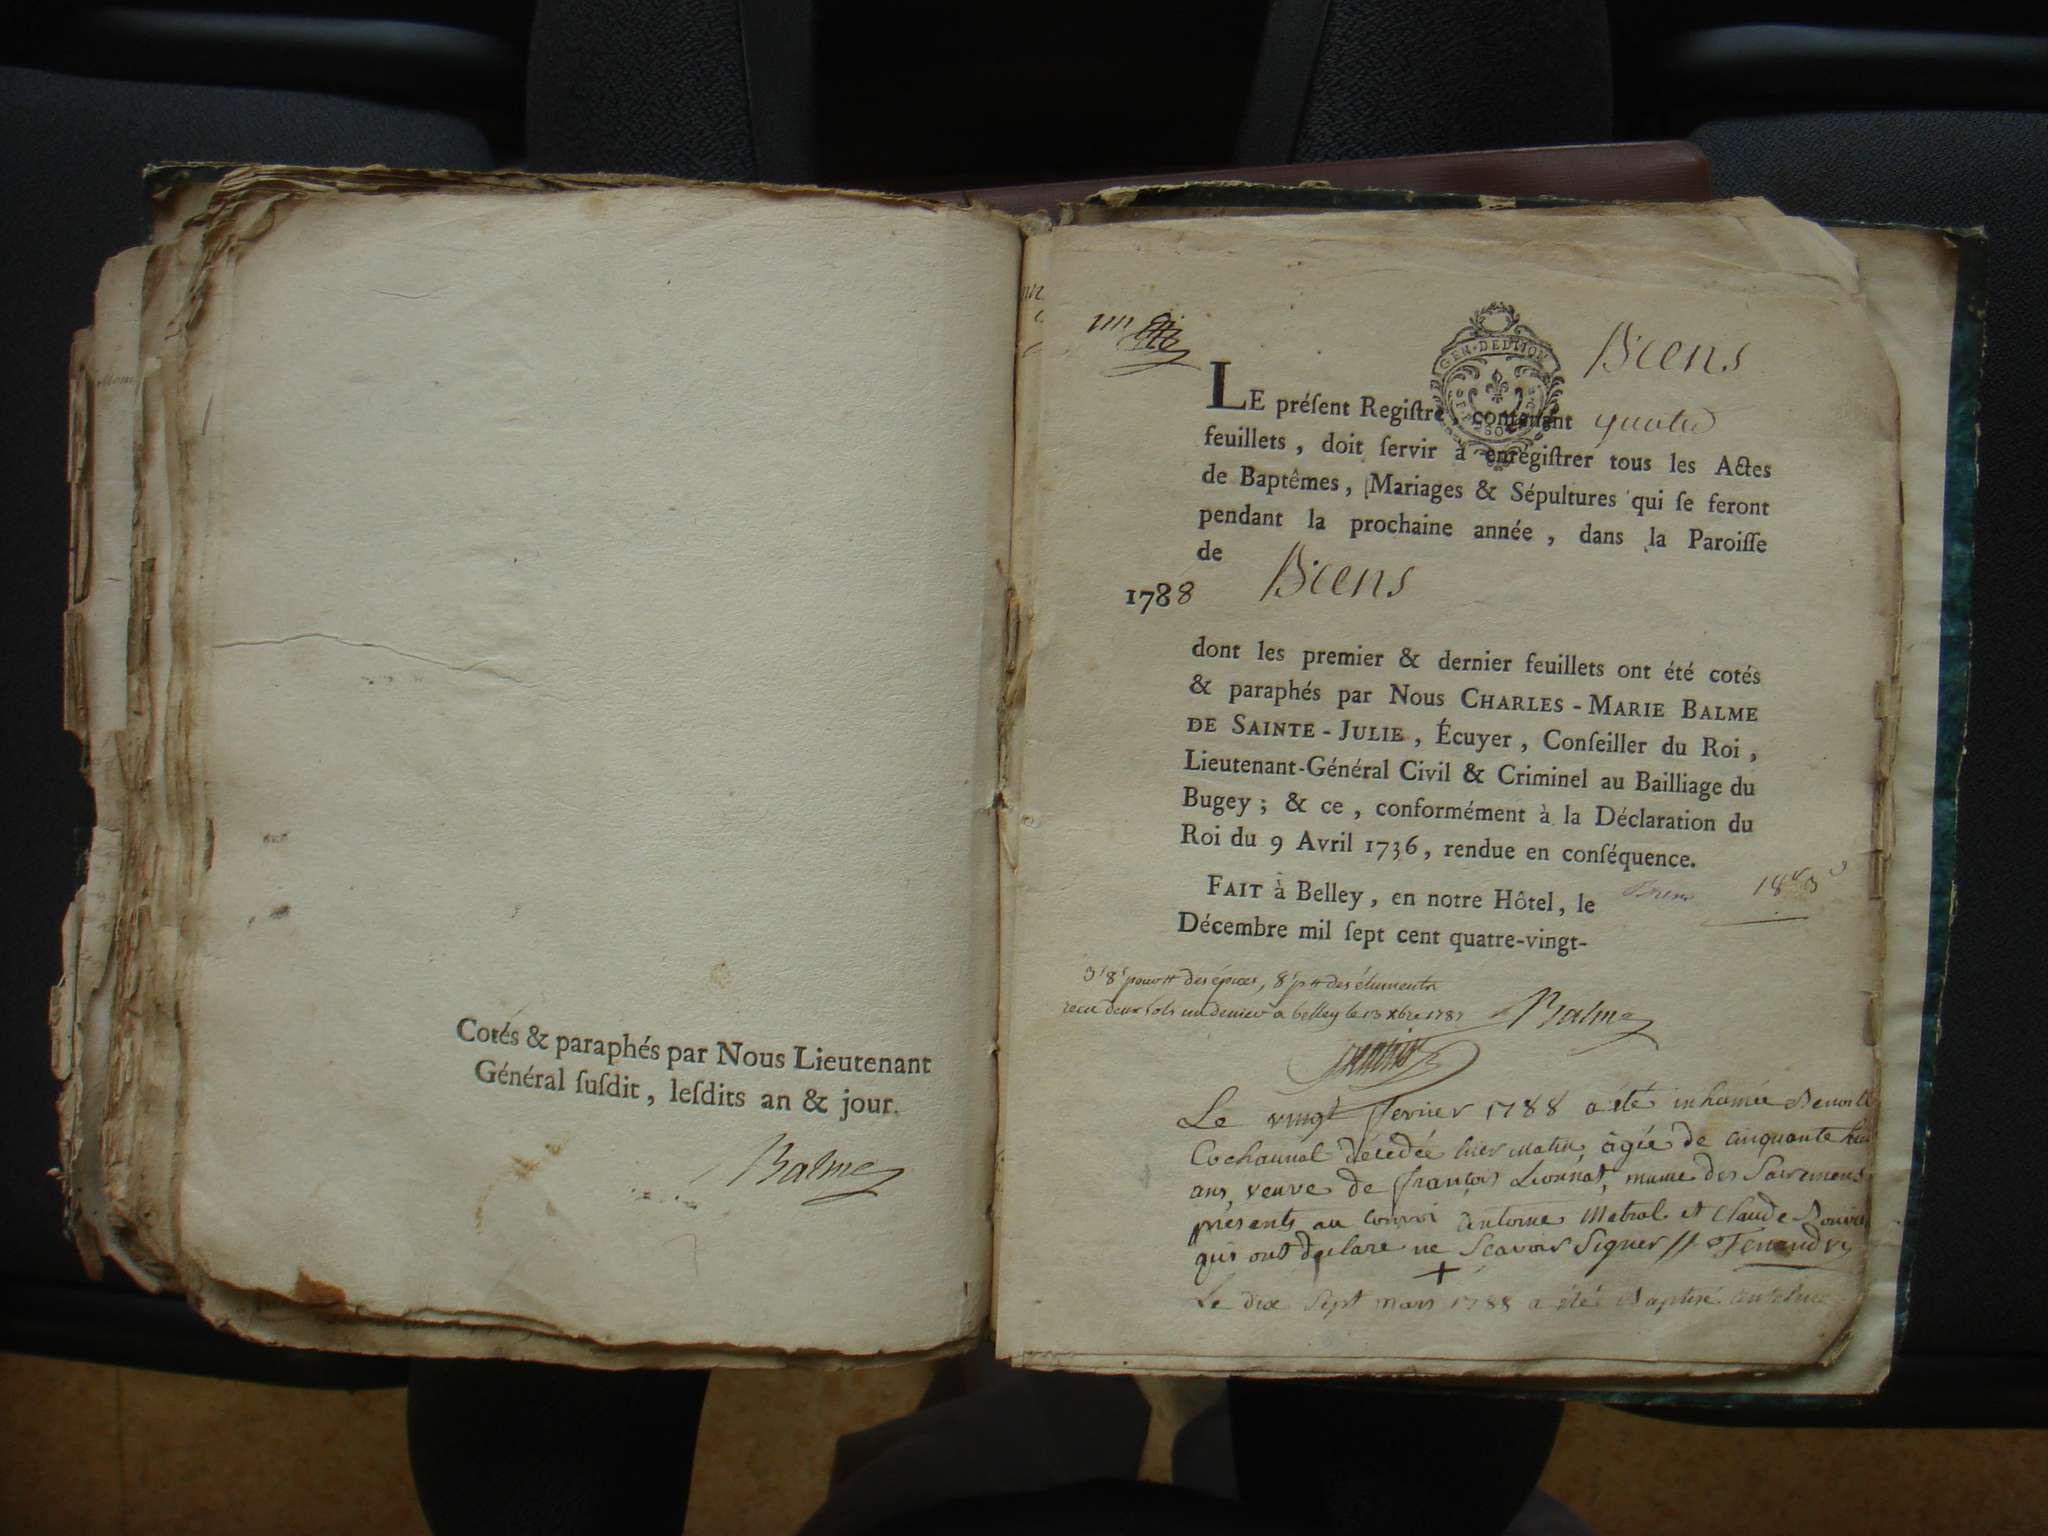 Cotés & paraphés par Nous Lieutenant
Général ſuſdit, leſdits an & jour.
Balme
Biens
GEN. DE DIJON
LE préſent Regiſtre, contenant quatre
feuillets, doit ſervir à enregiſtrer tous les Actes
de Baptêmes, Mariages & Sépultures qui ſe feront
pendant la prochaine année, dans la Paroiſſe
de Biens
1788
dont les premier & dernier feuillets ont été cotés
& paraphés par Nous CHARLES-MARIE BALME
DE SAINTE-JULIE, Écuyer, Conſeiller du Roi,
Lieutenant-Général Civil & Criminel au Bailliage du
Bugey; & ce, conformément à la Déclaration du
Roi du 9 Avril 1736, rendue en conſéquence.
FAIT à Belley, en notre Hôtel, le
Décembre mil ſept cent quatre-vingt-
des épices,
recu deux sols un denier a belley le 13 Xbre 1787 Balme
Le vingt fevrier 1788 a été inhumée Benoite
décedée hier matin, agée de cinquante huit
ans, veuve de françois Lionnat, munie des Sacremens,
présents au convoi antoine Metral et Claude
qui ont declaré ne Scavoir Signer // Tenaudry
Le dix Sept mars 1788 a été Baptisé antelme